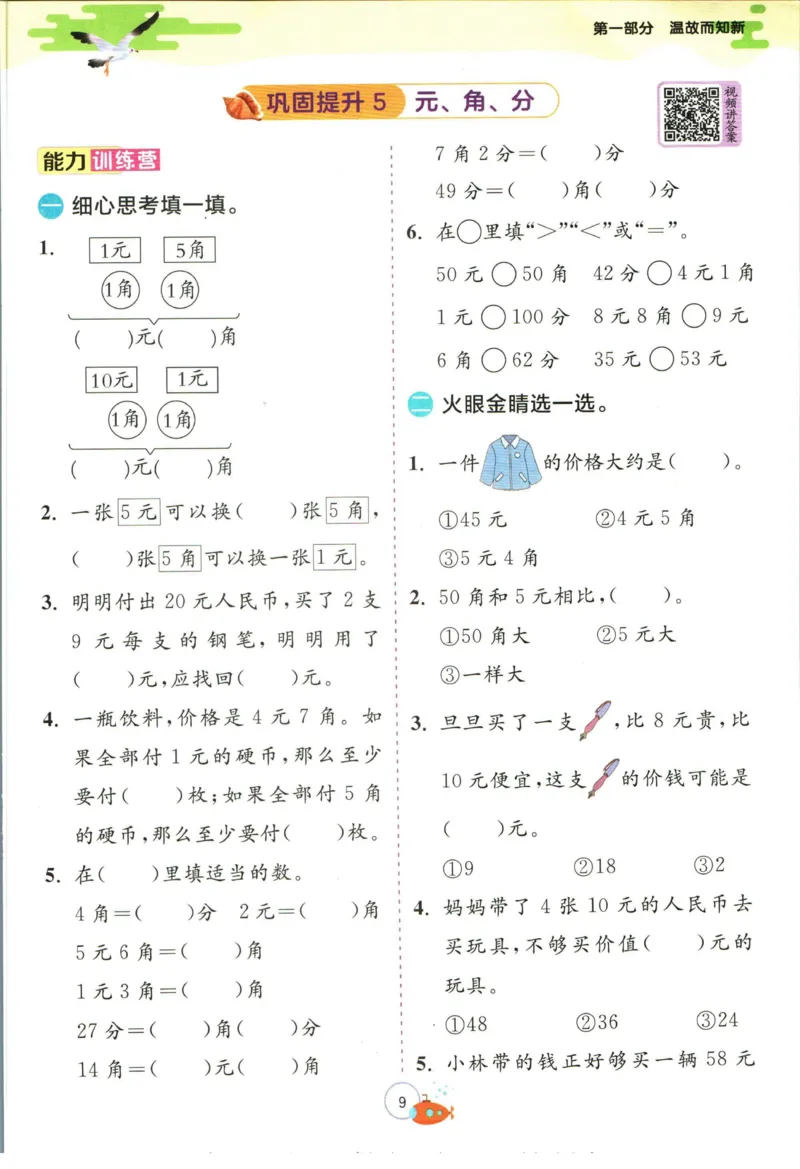 第一部分 温故而知新
巩固提升 5 元、角、分
视频讲答案
能力训练营
一 细心思考填一填。
1. 1元 5角
1角 1角
( )元( )角
10元 1元
1角 1角
( )元( )角
2. 一张 5 元 可以换( )张 5 角,
( )张 5 角 可以换一张 1 元。
3. 明明付出 20 元人民币,买了 2 支
9 元每支的钢笔,明明用了
( )元,应找回( )元。
4. 一瓶饮料,价格是 4 元 7 角。如
果全部付 1 元的硬币,那么至少
要付( )枚;如果全部付 5 角
的硬币,那么至少要付( )枚。
5. 在( )里填适当的数。
4 角=( )分 2 元=( )角
5 元 6 角=( )角
1 元 3 角=( )角
27 分=( )角( )分
14 角=( )元( )角
7 角 2 分=( )分
49 分=( )角( )分
6. 在○里填“>”“<”或“=”。
50 元○50 角 42 分○4 元 1 角
1 元○100 分 8 元 8 角○9 元
6 角○62 分 35 元○53 元
二 火眼金睛选一选。
1. 一件 的价格大约是( )。
①45 元 ②4 元 5 角
③5 元 4 角
2. 50 角和 5 元相比,( )。
①50 角大 ②5 元大
③一样大
3. 旦旦买了一支 ,比 8 元贵,比
10 元便宜,这支 的价钱可能是
( )元。
①9 ②18 ③2
4. 妈妈带了 4 张 10 元的人民币去
买玩具,不够买价值( )元的
玩具。
①48 ②36 ③24
5. 小林带的钱正好够买一辆 58 元
9